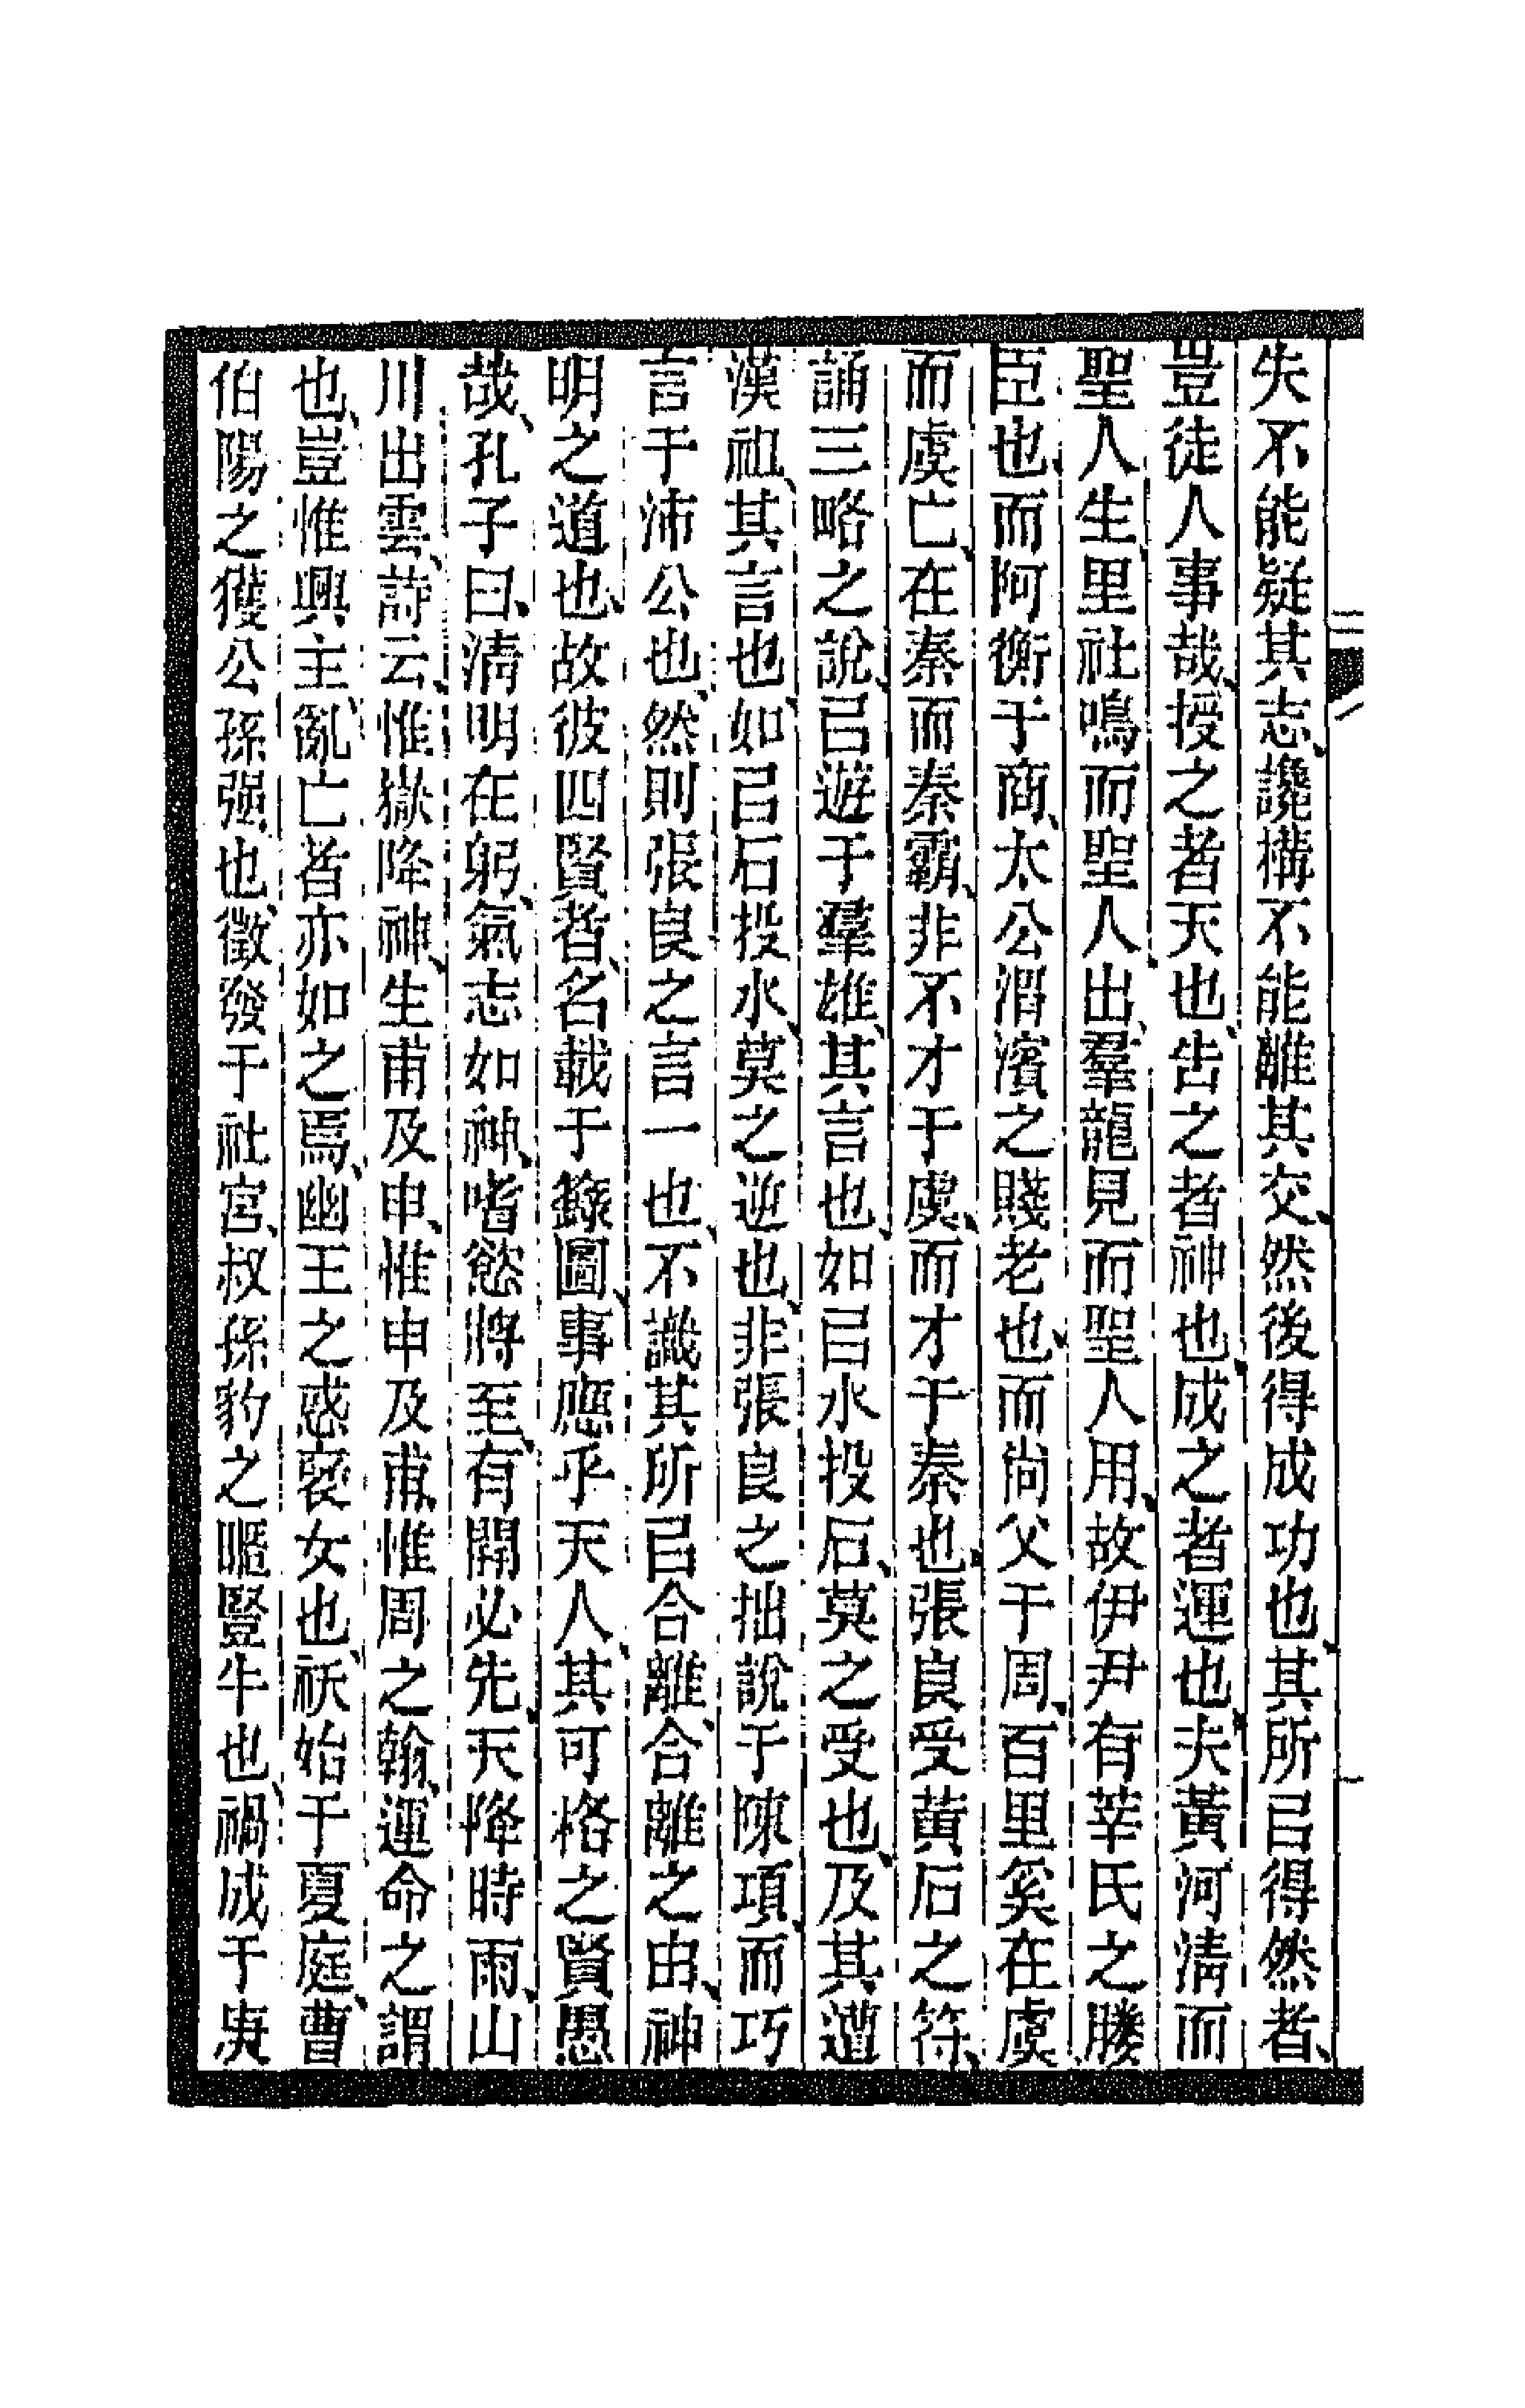 失不能疑其志、讒構不能離其交、然後得成功也、其所㠯得然者、
豈徒人事哉、授之者天也、告之者神也、成之者運也、夫黃河清而
聖人生、里社鳴而聖人出、羣龍見而聖人用、故伊尹有莘氏之媵
臣也、而阿衡于商、太公渭濱之賤老也、而尚父于周、百里奚在虞
而虞亡、在秦而秦霸、非不才于虞、而才于秦也、張良受黃石之符、
誦三略之說、㠯遊于羣雄、其言也、如㠯水投石、莫之受也、及其遭
漢祖、其言也、如㠯石投水、莫之逆也、非張良之拙說于陳項、而巧
言于沛公也、然則張良之言一也、不識其所㠯合離、合離之由、神
明之道也、故彼四賢者、名載于籙圖、事應乎天人、其可格之賢愚
哉、孔子曰、清明在躬、氣志如神、嗜慾將至、有開必先、天降時雨、山
川出雲、詩云、惟嶽降神、生甫及申、惟申及甫、惟周之翰、運命之謂
也、豈惟興主、亂亡者亦如之焉、幽王之惑襃女也、祅始于夏庭、曹
伯陽之獲公孫强也、徵發于社宮、叔孫豹之暱豎牛也、禍成于庚